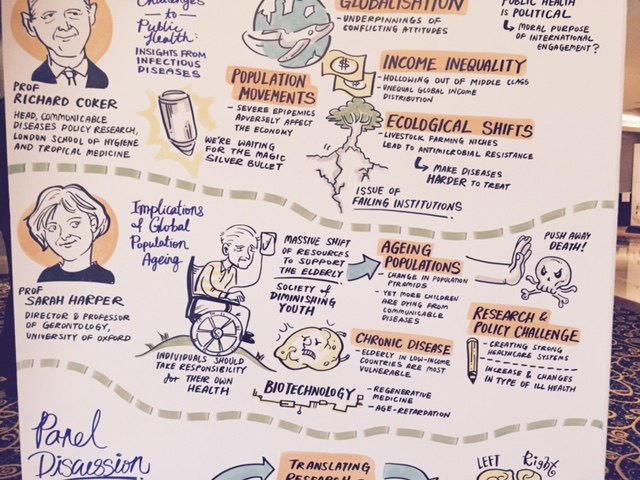 Challenges
to
Public
Health:
INSIGHTS FROM
INFECTIOUS
DISEASES
PROF
RICHARD COKER
HEAD, COMMUNICABLE
DISEASES POLICY RESEARCH,
LONDON SCHOOL OF HYGIENE
AND TROPICAL MEDICINE
GLOBALISATION
- UNDERPINNINGS OF
CONFLICTING ATTITUDES
PUBLIC HEALTH
IS POLITICAL
MORAL PURPOSE
OF INTERNATIONAL
ENGAGEMENT?
POPULATION
MOVEMENTS
- SEVERE EPIDEMICS
ADVERSELY AFFECT
THE ECONOMY
WE'RE WAITING
FOR THE MAGIC
SILVER BULLET
$
$
INCOME INEQUALITY
- HOLLOWING OUT OF MIDDLE CLASS
- UNEQUAL GLOBAL INCOME
DISTRIBUTION
ECOLOGICAL SHIFTS
- LIVESTOCK FARMING NICHES
LEAD TO ANTIMICROBIAL RESISTANCE
MAKE DISEASES
HARDER TO TREAT
ISSUE OF
FAILING INSTITUTIONS
PROF
SARAH HARPER
DIRECTOR & PROFESSOR
OF GERONTOLOGY,
UNIVERSITY OF OXFORD
Implications
of Global
Population
Ageing
INDIVIDUALS SHOULD
TAKE RESPONSIBILITY
for THEIR OWN
HEALTH
MASSIVE SHIFT
OF RESOURCES
TO SUPPORT
THE ELDERLY
SOCIETY of
DIMINISHING
YOUTH
AGEING
POPULATIONS
- CHANGE IN POPULATION
PYRAMIDS
- YET MORE CHILDREN
ARE DYING FROM
COMMUNICABLE
DISEASES
PUSH AWAY
DEATH!
CHRONIC DISEASE
- ELDERLY IN LOW-INCOME
COUNTRIES ARE MOST
VULNERABLE
BIOTECHNOLOGY
- REGENERATIVE
MEDICINE
- AGE-RETARDATION
RESEARCH &
POLICY CHALLENGE
- CREATING STRONG
HEALTHCARE SYSTEMS
- INCREASE & CHANGES
IN TYPE OF ILL HEALTH
Panel
Discussion
TRANSLATING
RESEARCH
LEFT
Right